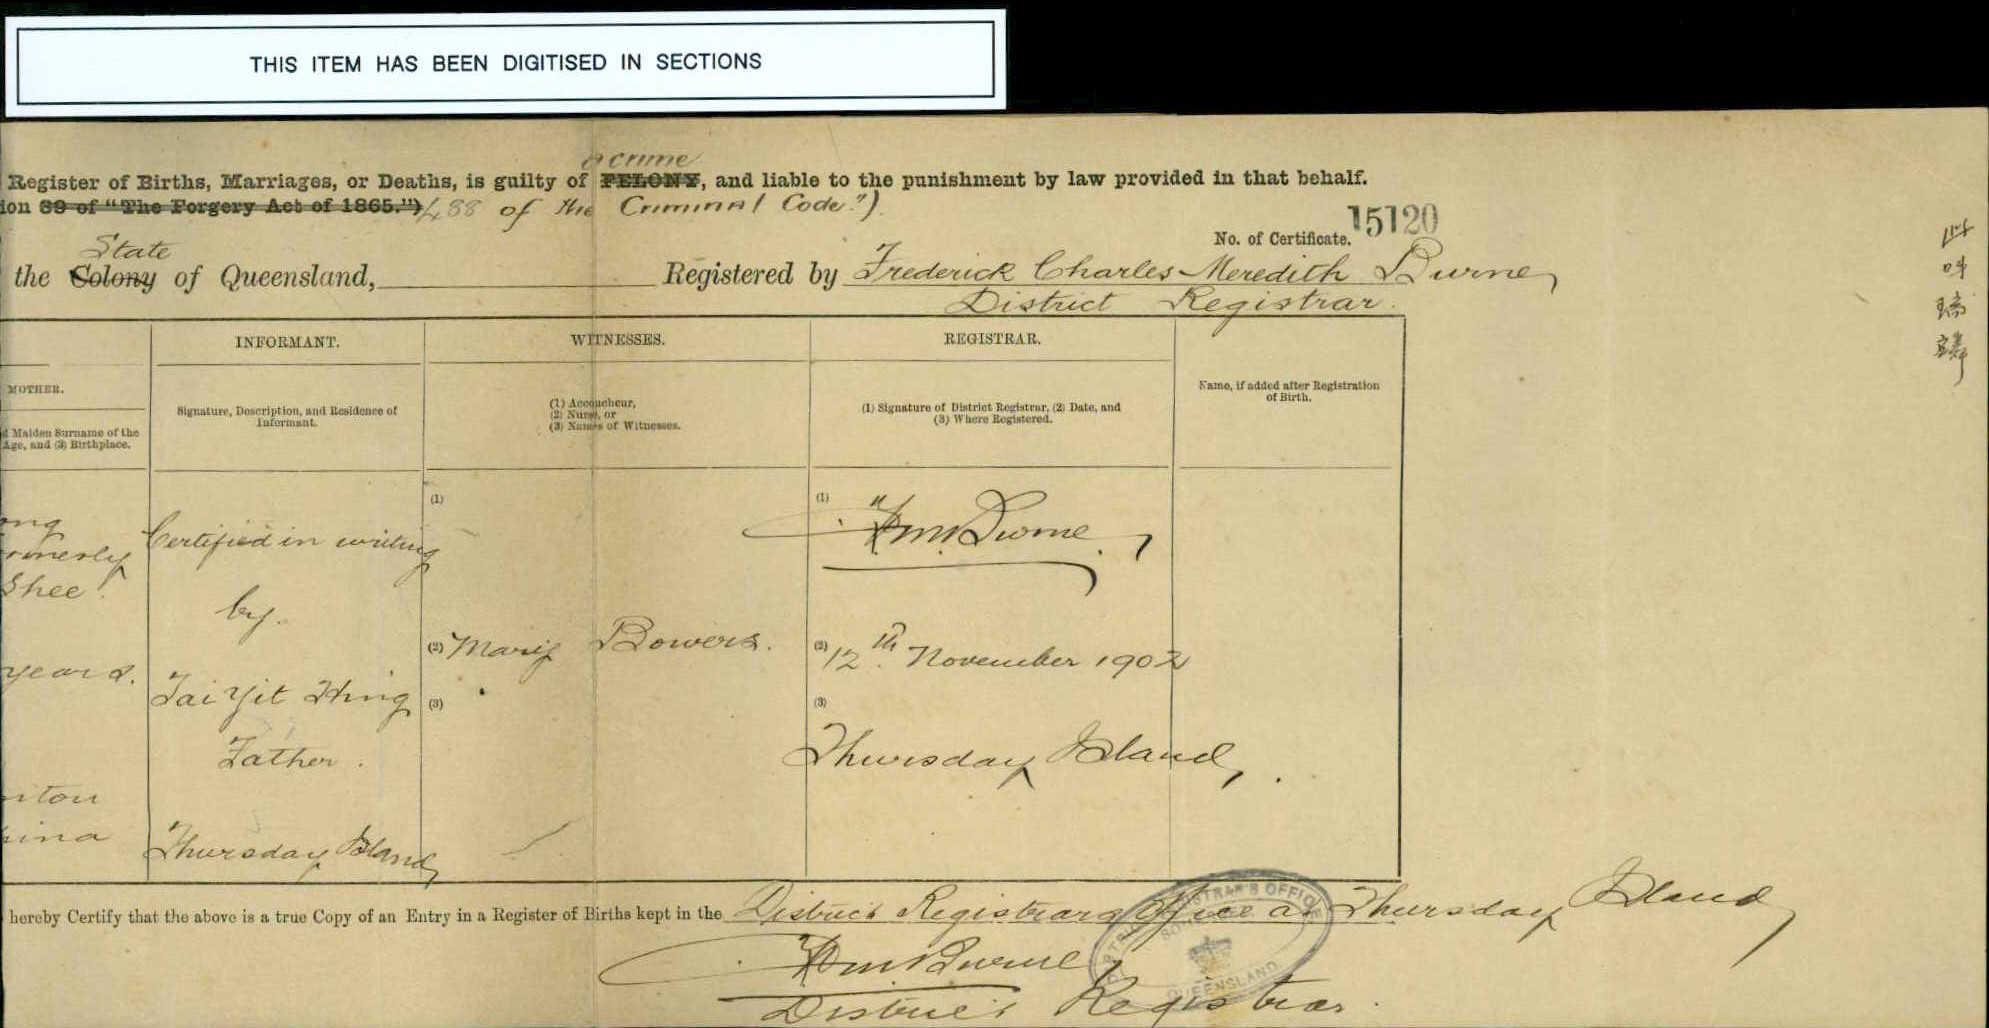 THIS ITEM HAS BEEN DIGITISED IN SECTIONS
a crime
Register of Births, Marriages, or Deaths, is guilty of FELONY, and liable to the punishment by law provided in that behalf.
ion 89 of "The Forgery Act of 1865.") 488 of the Criminal Code.")
No. of Certificate. 15120
State
the Colony of Queensland, Registered by Frederick Charles Meredith Burne,
District Registrar.
INFORMANT. WITNESSES. REGISTRAR.
MOTHER.
Name, if added after Registration
of Birth.
Signature, Description, and Residence of
Informant.
(1) Accoucheur,
(2) Nurse, or
(3) Names of Witnesses.
(1) Signature of District Registrar, (2) Date, and
(3) Where Registered.
d Maiden Surname of the
Age, and (3) Birthplace.
(1) (1)
ong
Certified in writing
ormerly
Shee.
by.
(2) Mary Bowers. (2) 12th November 1902
years.
Tai Yit Hing (3) (3)
Father.
Thursday Island,
nton
hina
Thursday Island,
hereby Certify that the above is a true Copy of an Entry in a Register of Births kept in the District Registrars Office at Thursday Island,
District Registrar.
DISTRICT REGISTRAR'S OFFICE
SOMERSET
QUEENSLAND